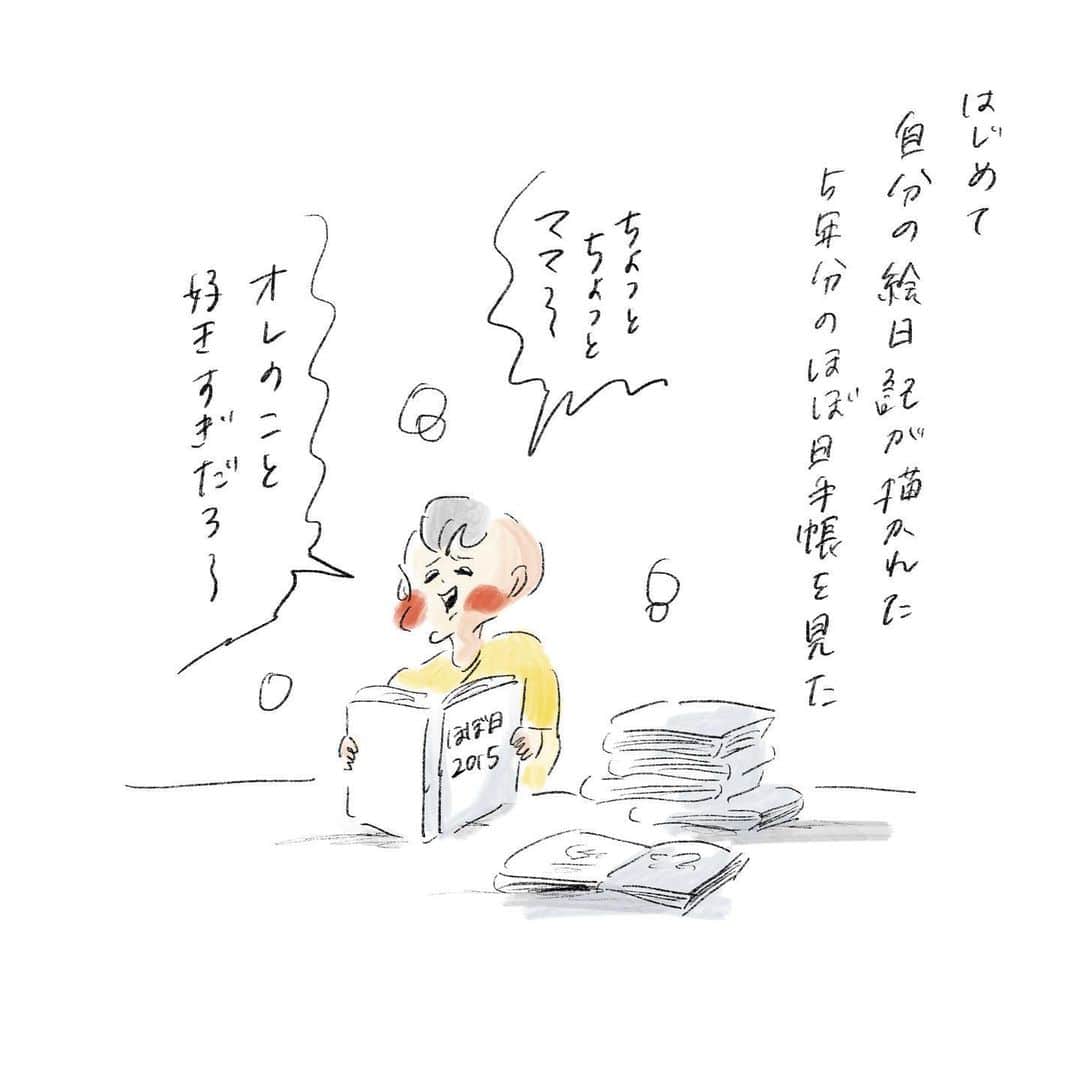 はじめて
自分の絵日記が描かれた
5年分のほぼ日手帳を見た
ちょっと
ちょっと
ママ〜
オレのこと
好きすぎだろ〜
ほぼ日
2015